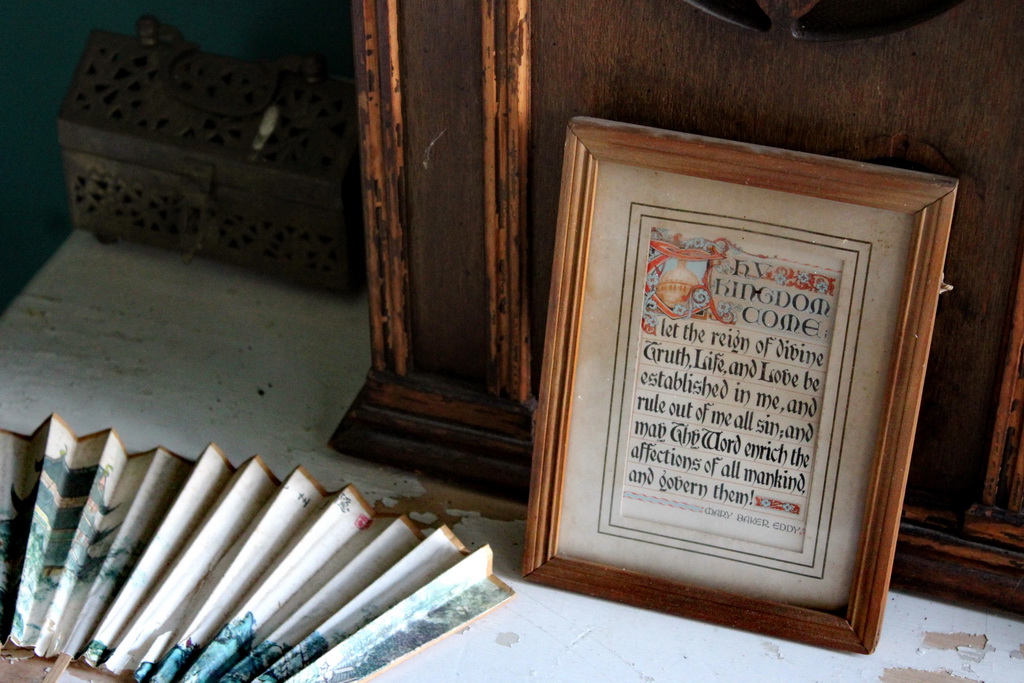 Thy
KINGDOM
COME;
let the reign of divine
Truth, Life, and Love be
established in me, and
rule out of me all sin; and
may Thy Word enrich the
affections of all mankind,
and govern them!
MARY BAKER EDDY